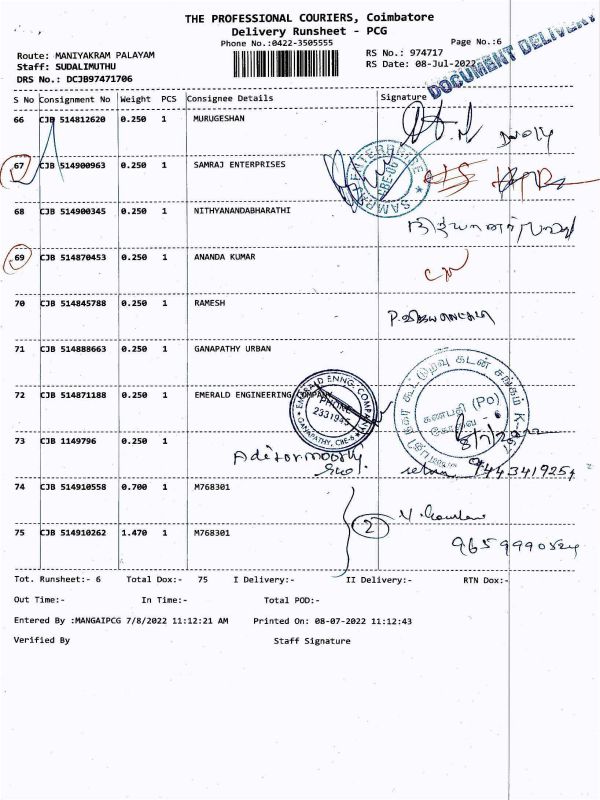 THE PROFESSIONAL COURIERS, Coimbatore
Delivery Runsheet - PCG
Phone No.:0422-3505555
Page No.:6
DOCUMENT DELIVERY
Route: MANIYAKRAM PALAYAM
RS No.: 974717
Staff: SUDALIMUTHU
RS Date: 08-Jul-2022
DRS No.: DCJB97471706
S No Consignment No Weight PCS Consignee Details Signature
66 CJB 514812620 0.250 1 MURUGESHAN
67 CJB 514900963 0.250 1 SAMRAJ ENTERPRISES
68 CJB 514900345 0.250 1 NITHYANANDABHARATHI
69 CJB 514870453 0.250 1 ANANDA KUMAR
70 CJB 514845788 0.250 1 RAMESH
71 CJB 514888663 0.250 1 GANAPATHY URBAN
72 CJB 514871188 0.250 1 EMERALD ENGINEERING COMPANY
EMERALD ENNG. COMPANY
PHONE
2331945
GANAPATHY, CBE-6
கணபதி (Po)
கோவை
8/7/2022
73 CJB 1149796 0.250 1
9443419257
74 CJB 514910558 0.700 1 M768301
2
75 CJB 514910262 1.470 1 M768301
Tot. Runsheet:- 6 Total Dox:- 75 I Delivery:- II Delivery:- RTN Dox:-
Out Time:- In Time:- Total POD:-
Entered By :MANGAIPCG 7/8/2022 11:12:21 AM Printed On: 08-07-2022 11:12:43
Verified By Staff Signature